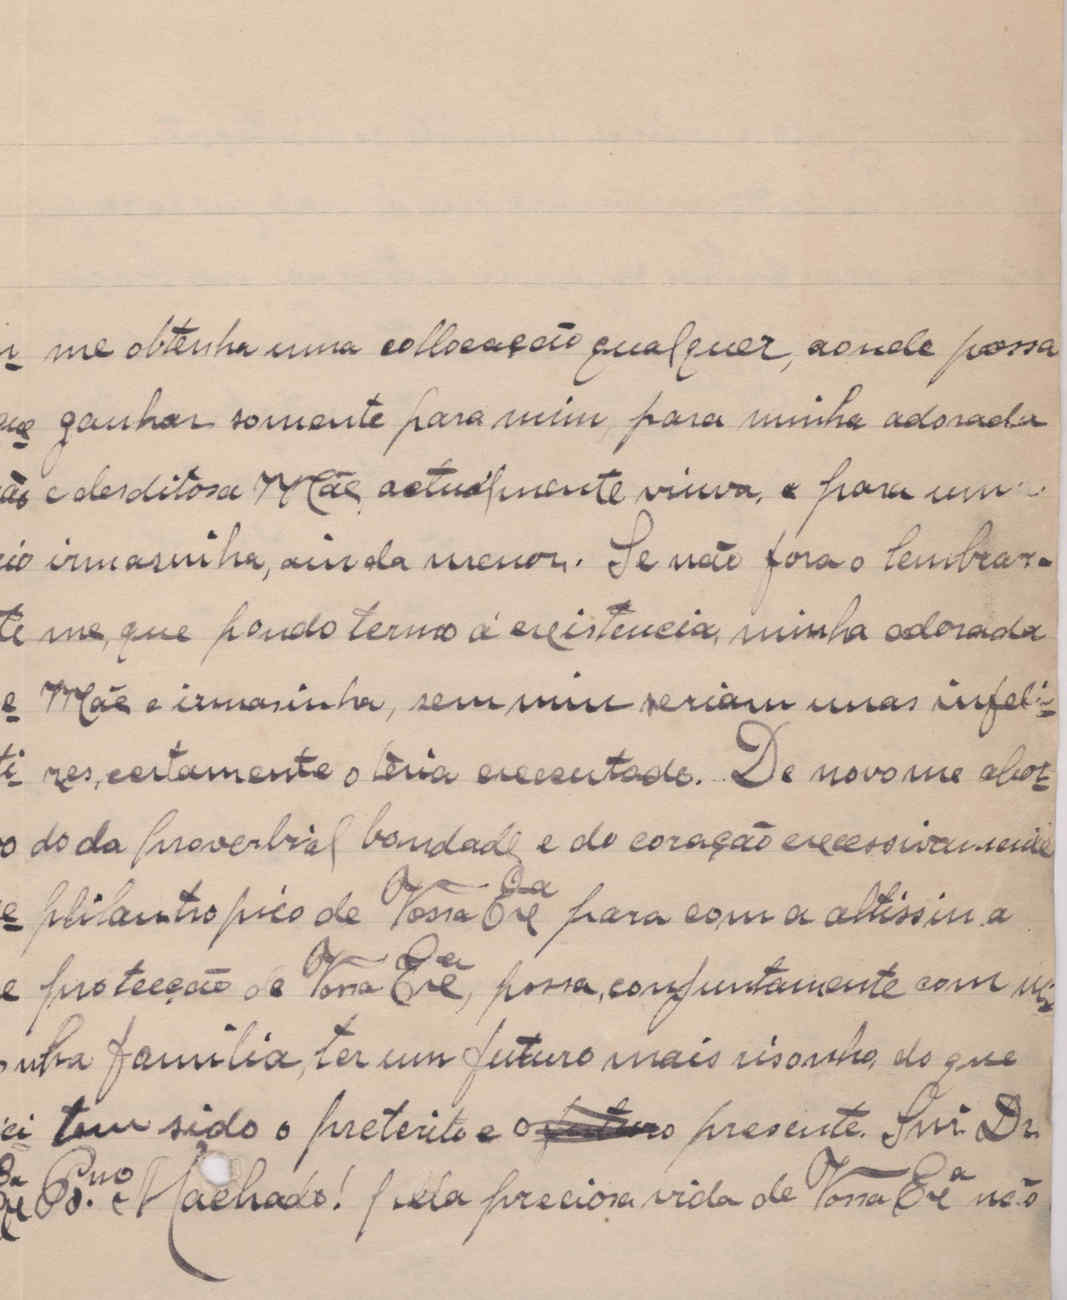 me obtenha uma collocação qualquer, aonde possa
ganhar somente para mim, para minha adorada
e desditosa Mãe, actualmente viuva, e para um
irmasinha, ainda menor. Se não fora o lembrar-
te me, que pondo termo á existencia, minha adorada
e Mãe e irmasinha, sem mim seriam umas infeli-
ti- zes, certamente o teria executado. De novo me abor-
do da proverbial bondade e do coração excessivamente
e philantropico de Vossa Exª para com a altissima
e protecção de Vossa Exª, possa, conjuntamente com mi-
nha familia, ter um futuro mais risonho, do que
tem sido o preterito e o futuro presente. Snr. Dr.
Machado! pela preciosa vida de Vossa Exª não